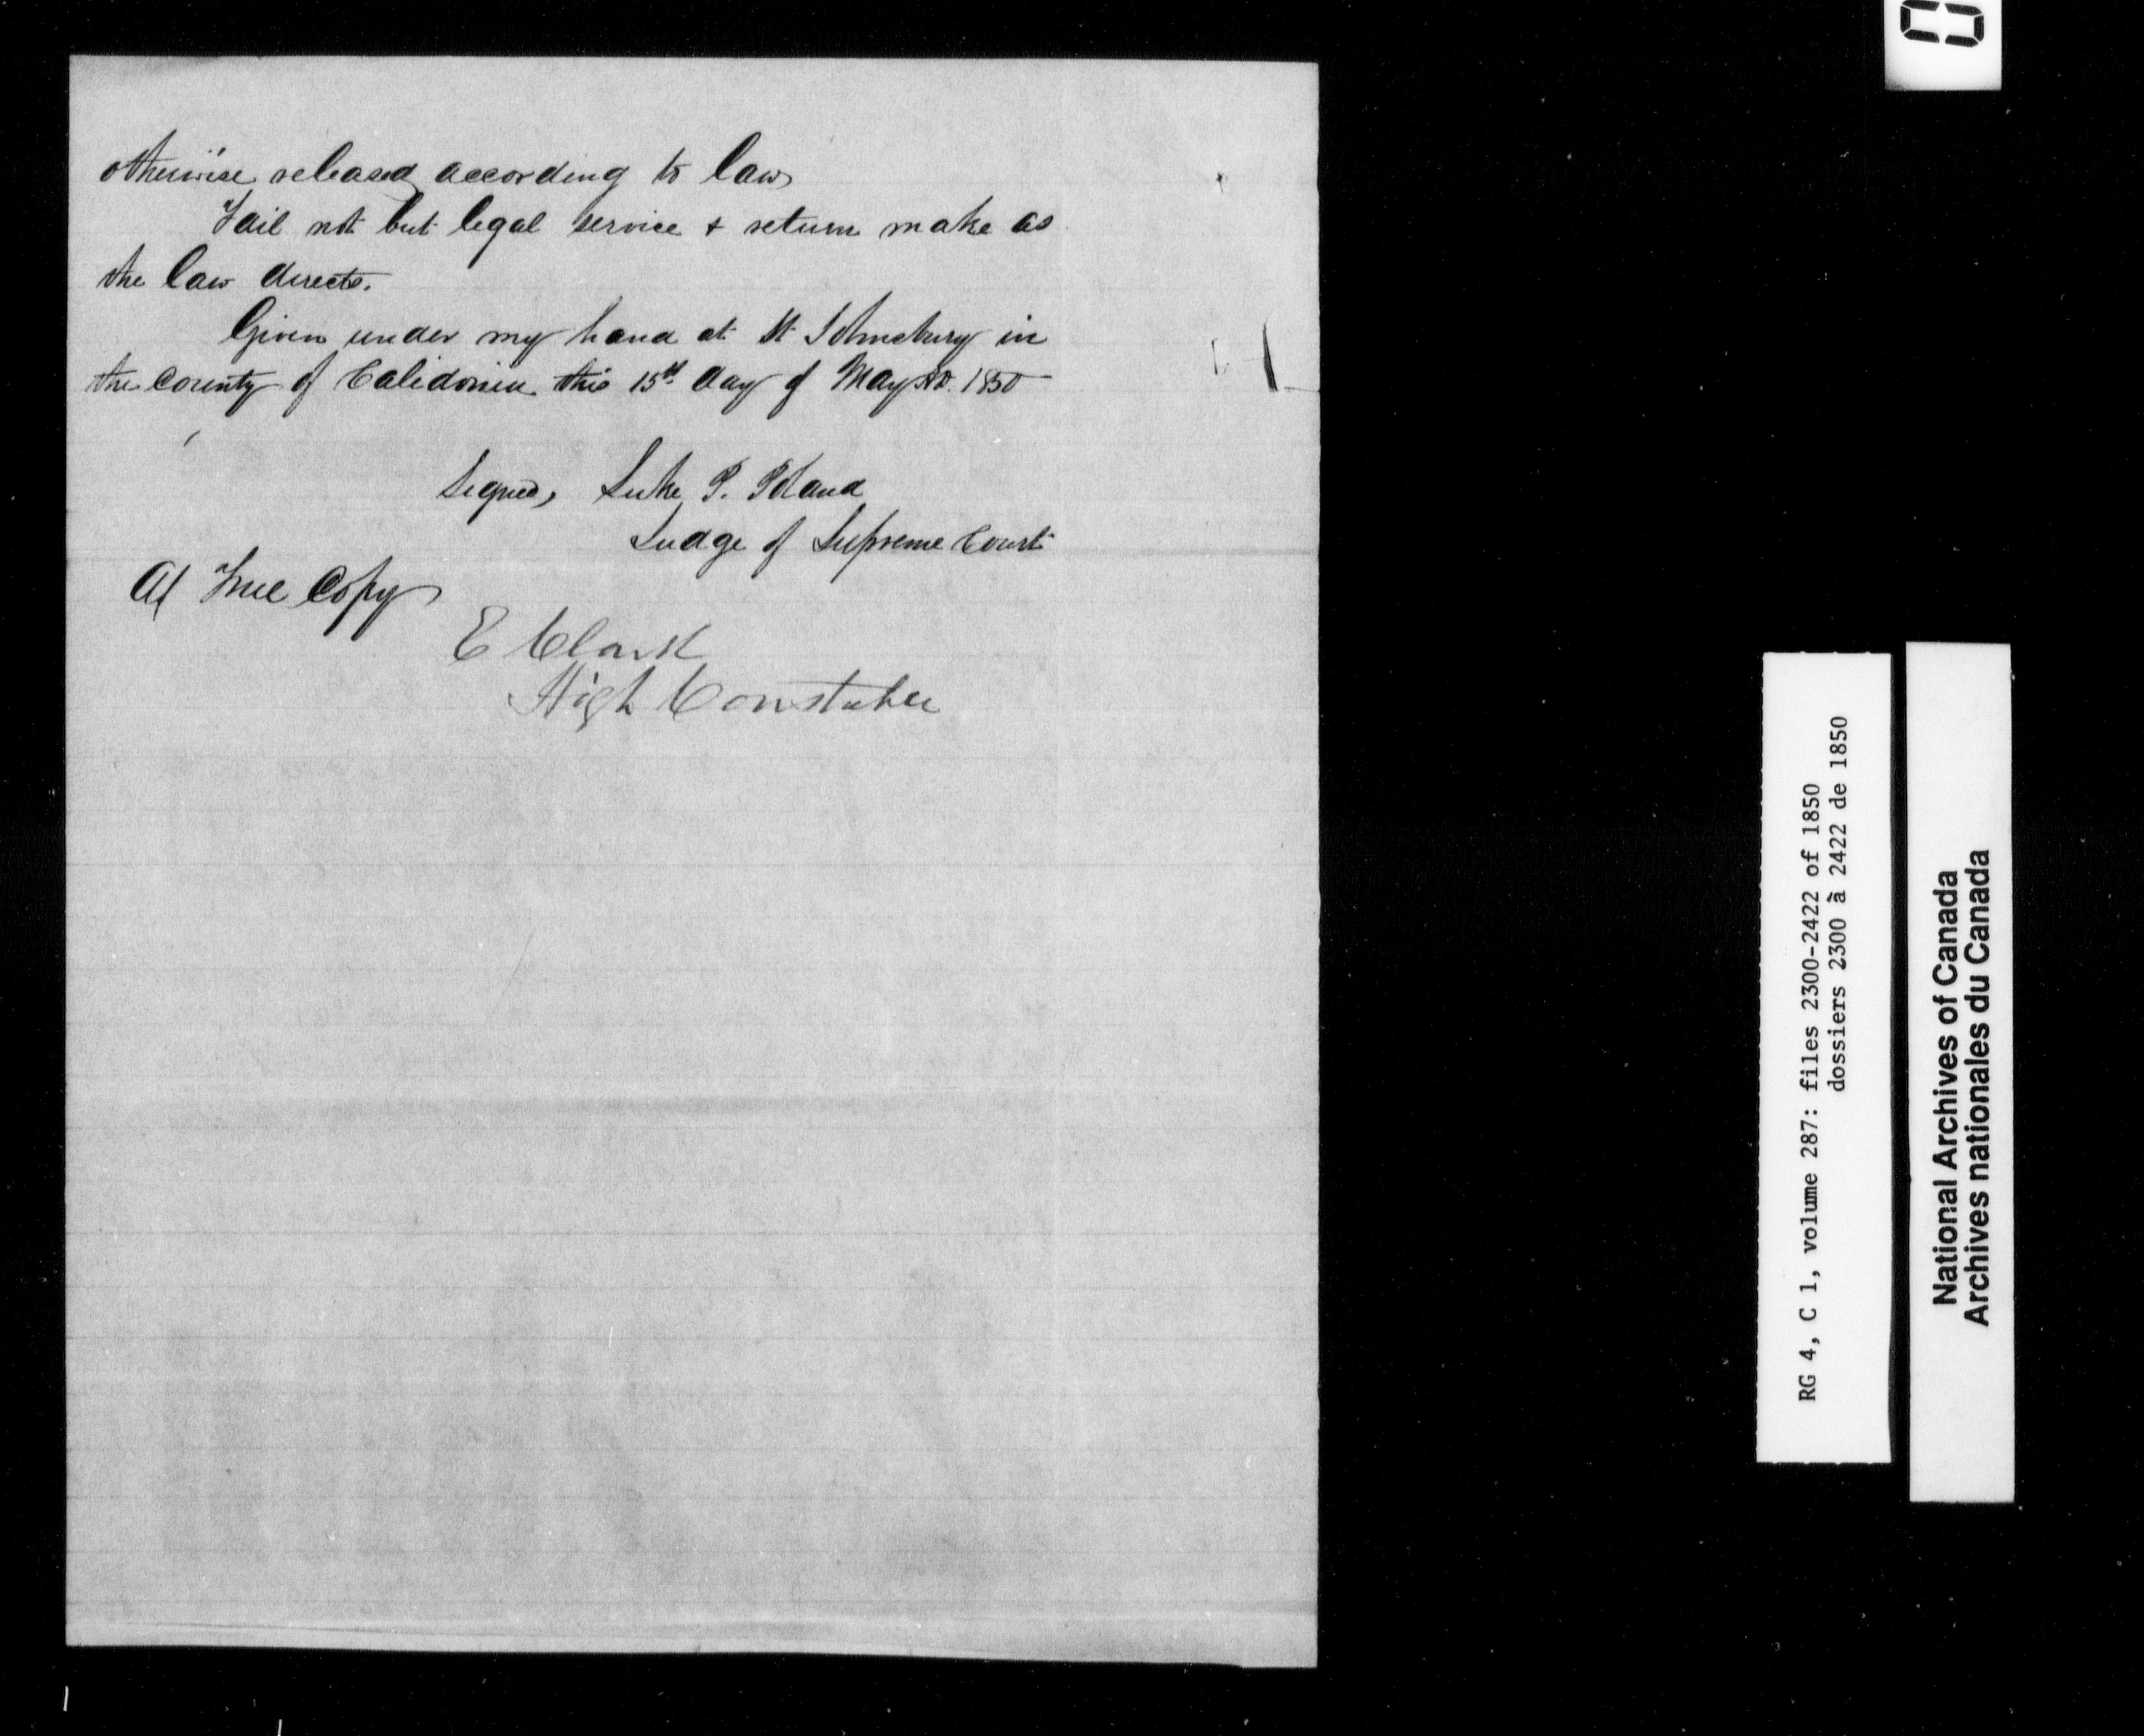 otherwise released according to law
Fail not but legal service & return make as
the law directs.
Given under my hand at St Johnsbury in
the County of Calidonia this 15th day of May AD. 1850
Signed, Luke P. Poland
Judge of Supreme Court
A True Copy
E Clark
High Constable
RG 4, C 1, volume 287: files 2300-2422 of 1850
dossiers 2300 à 2422 de 1850
National Archives of Canada
Archives nationales du Canada